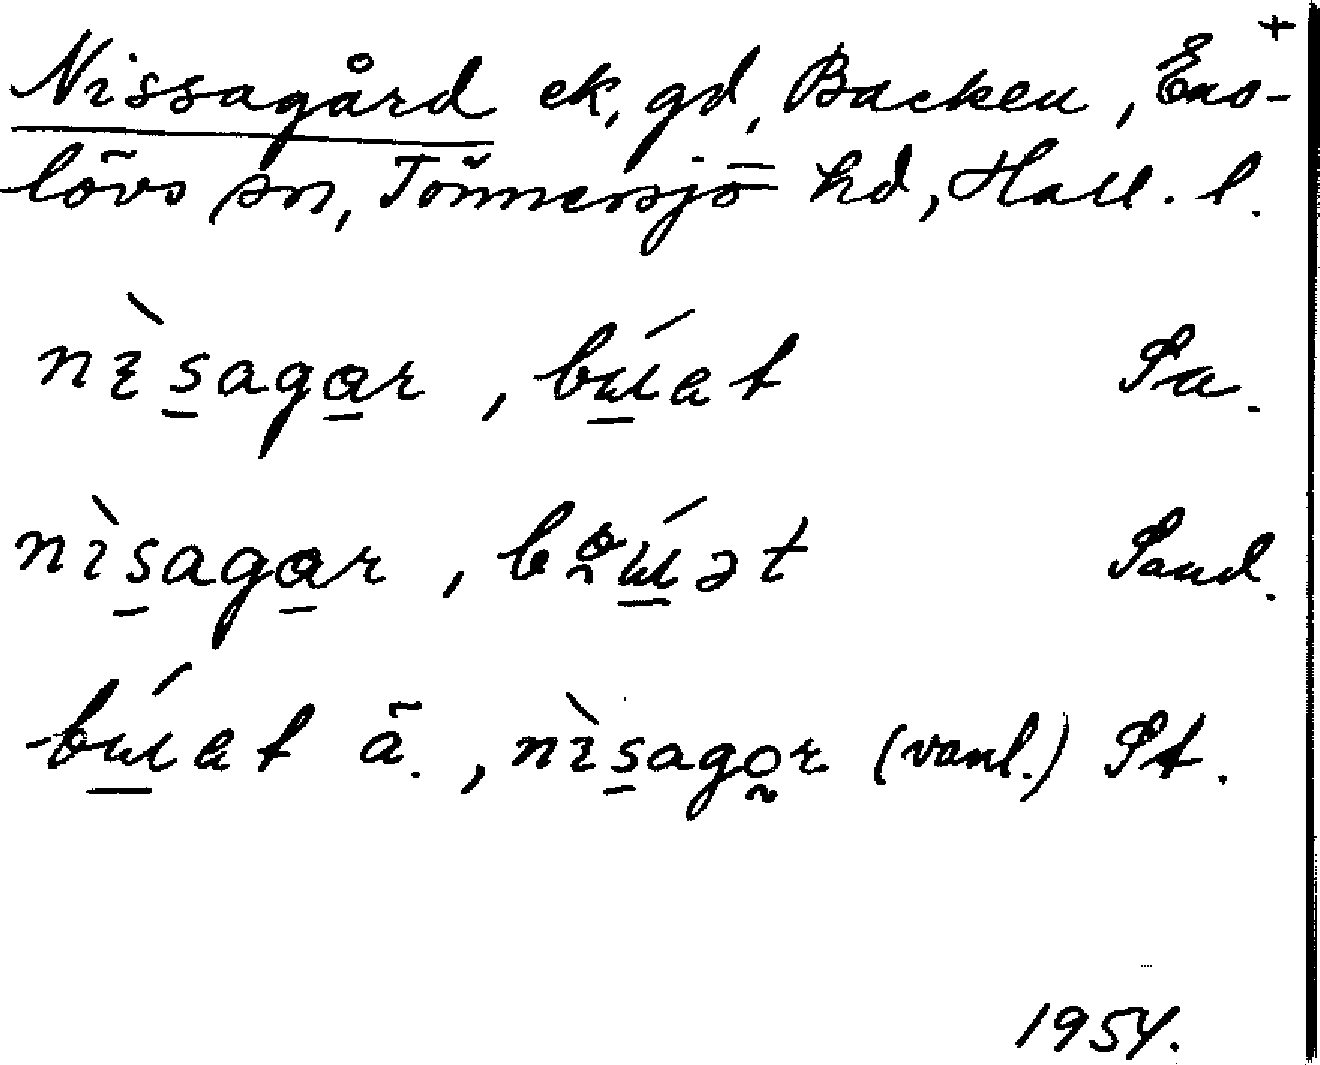 +
Nissagård ek, gd, Backen, Ens-
lövs sn, Tönnersjö hd, Hall. l.
nìsagar, búet Sa.
nìsagar, bǫúət Sand.
búet ä., nìsagǫr (vanl.) St.
1954.